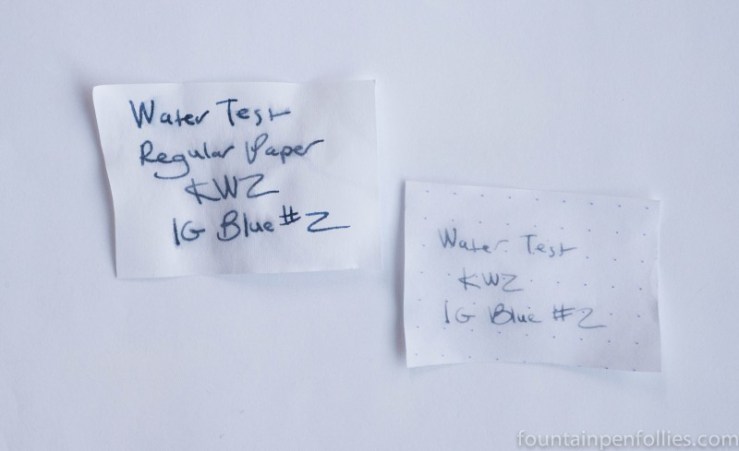 Water Test
Regular Paper
KWZ
IG Blue #2
Water Test
KWZ
IG Blue #2
fountainpenfollies.com